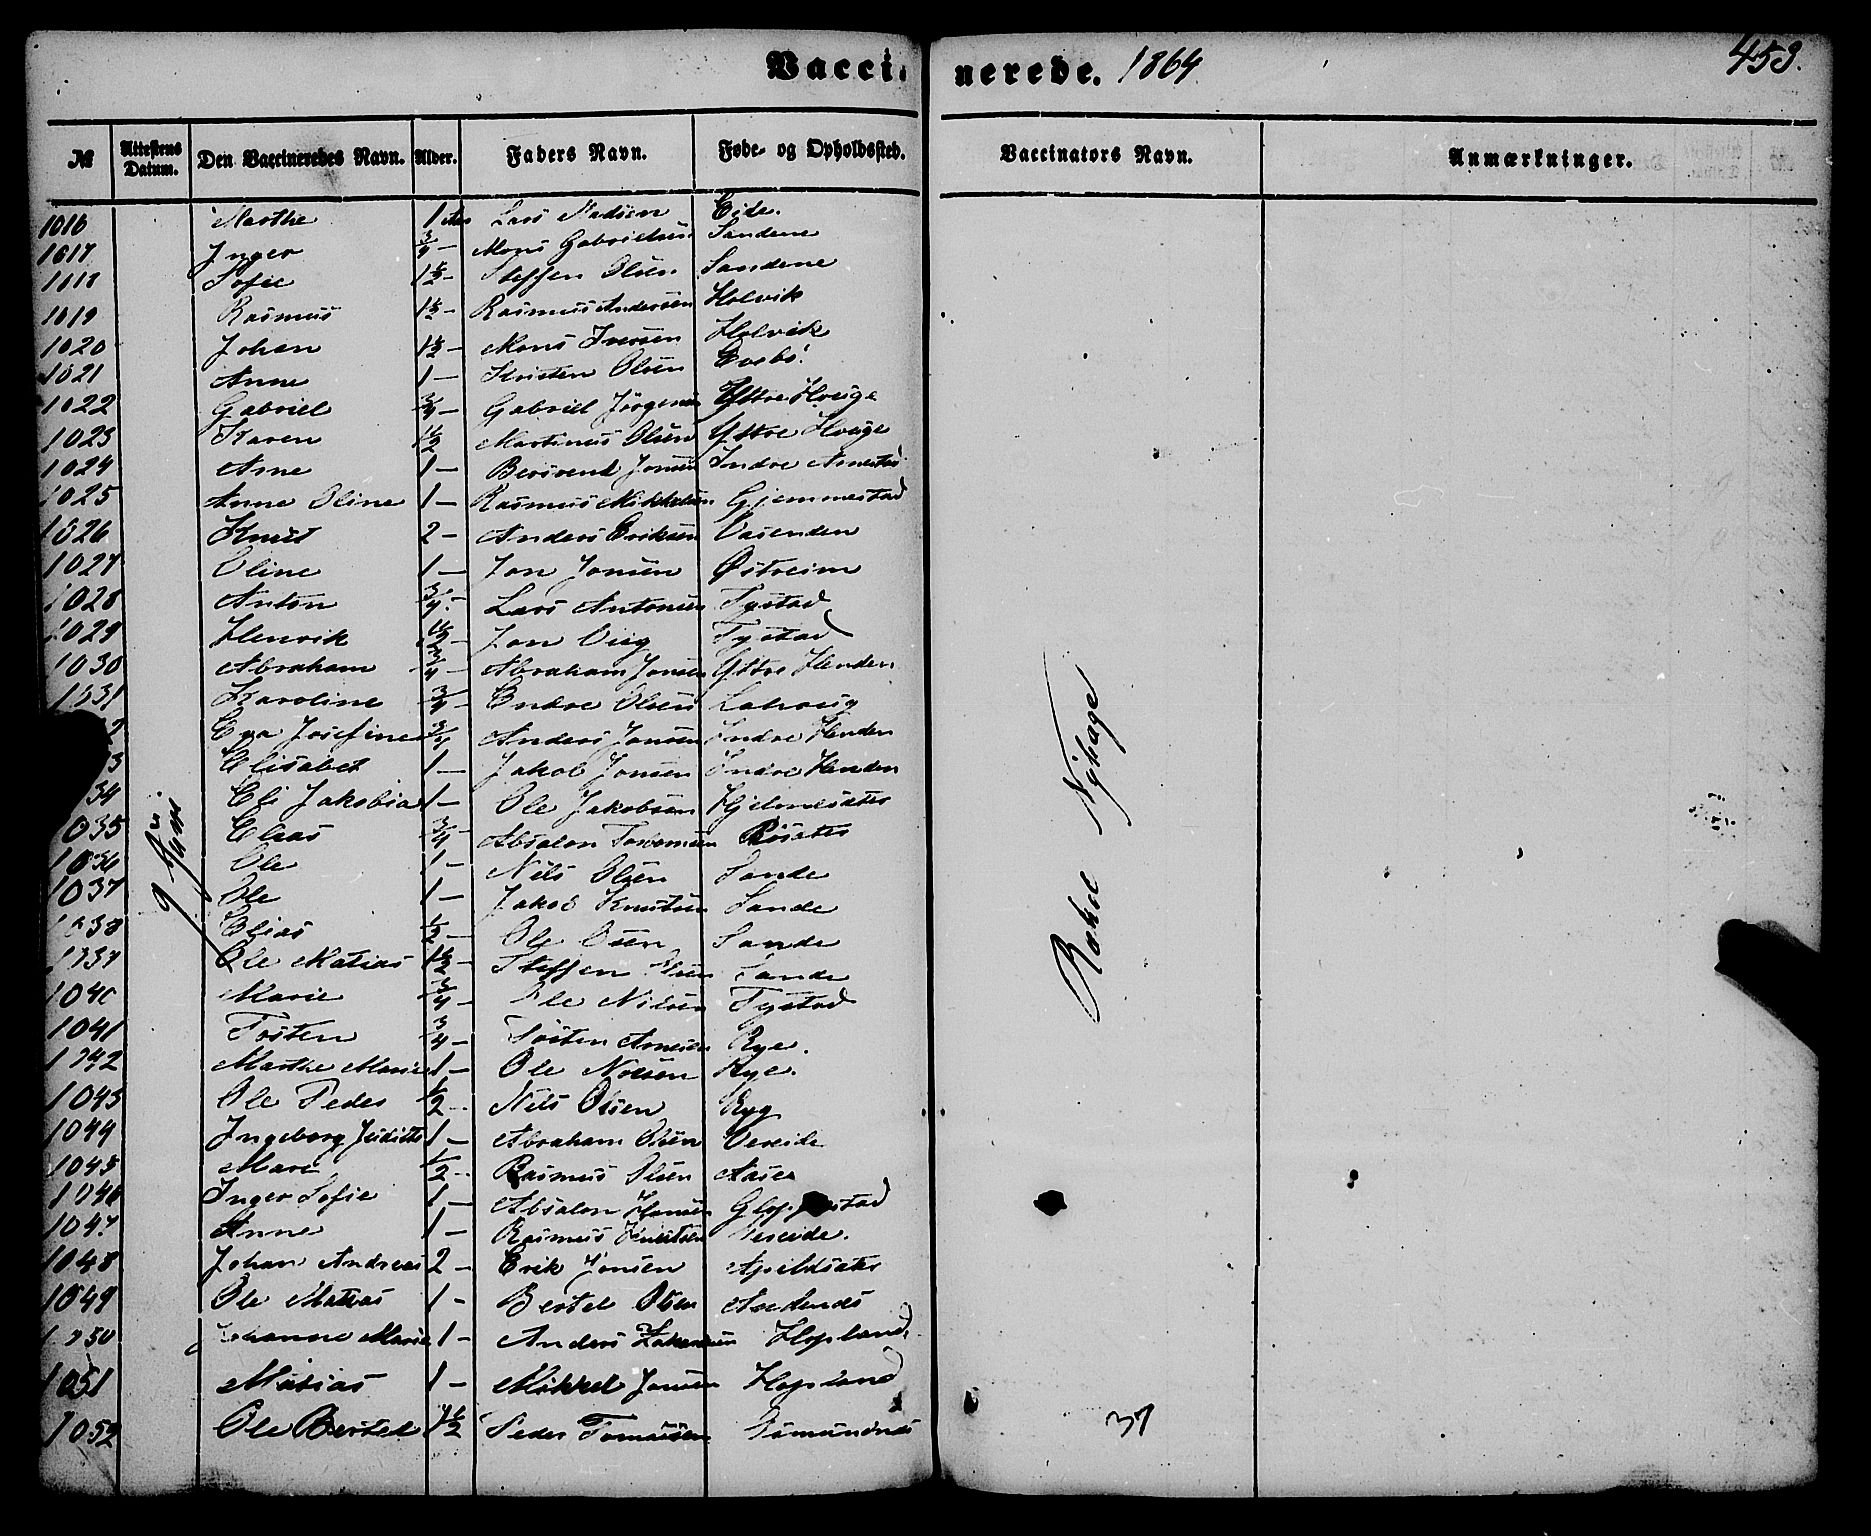 Vaccinerede. 1864 453.
№ Attestens Datum. Den Vaccineredes Navn. Alder. Faders Navn. Føde- og Opholdssted. Vaccinators Navn. Anmærkninger.
1016 Marthe 1 Lars Eide.
1017 Inger 3/4 - Mons Gabrielsen Sandene
1018 Sofie 1 1/2 - Steffen Olsen Sandene
1019 Rasmus 1 1/2 - Rasmus Andersen Holvik
1020 Johan 1 1/2 - Mons Iversen Holvik
1021 Anne 1 - Kristen Olsen Evebö
1022 Gabriel 3/4 - Gabriel Jörgensen Yttre Hauge
1023 Karen 1 1/2 Martinus Olsen Yttre Hauge
1024 Arne 1 - Berivend Jonsen Indre
1025 Anne Oline 1 - Rasmus Mikkelsen Gjemmestad
1026 Knut 2 - Anders Eriksen Vasenden
1027 Oline 1 - Jon Jonsen Østreim
1028 Anton 3/4 - Lars Antonsen Tystad
1029 Henrik 1 1/2 - Jon Tystad
1030 Abraham 3/4 - Abraham Jonsen Yttre Henden
1031 Karoline 3/4 - Endre Olsen
2 Eva Josefine 3/4 Anders Jonsen Indre Henden
3 Elisabet 1 - Jakob Jonsen Indre Henden
34 Eli Jakobia 1 - Ole Jakobsen Hjelmesæter
035 Elias 3/4 - Absalon
1036 Ole 1 - Nils Olsen Sande
1037 Ole 1 - Jakob Knutsen Sande
1038 Elias 1/2 - Ole Olsen Sande
1039 Ole Matias 1 1/2 - Steffen Olsen Sande
1040 Marie 3/4 - Ole Nilsen Tystad
1041 Tosten 3/4 - Tosten Arnesen Rye.
1042 Marthe Marie 1 - Ole Rye.
1043 Ole Peder 1/2 - Nils Olsen Ryg
1044 Ingeborg Judithe 1 - Abraham Olsen Vereide
1045 Mari 1/2 - Rasmus Olsen Aase
1046 Inger Sofie 1 - Absalon Hansen
1047 Anne 1 - Rasmus Knutsen Vereide.
1048 Johan Andreas 2 - Erik Jonsen Apeldsæter
1049 Ole Matias 1 - Bertel Olsen Andenæs
1050 Johanne Marie 1 - Anders Hopland
1051 Matias 1 - Mikkel Jonsen Hopland
1052 Ole Bertel 1 1/2 Peder Tomassen
9 Juni
Rakel Nyhage
37